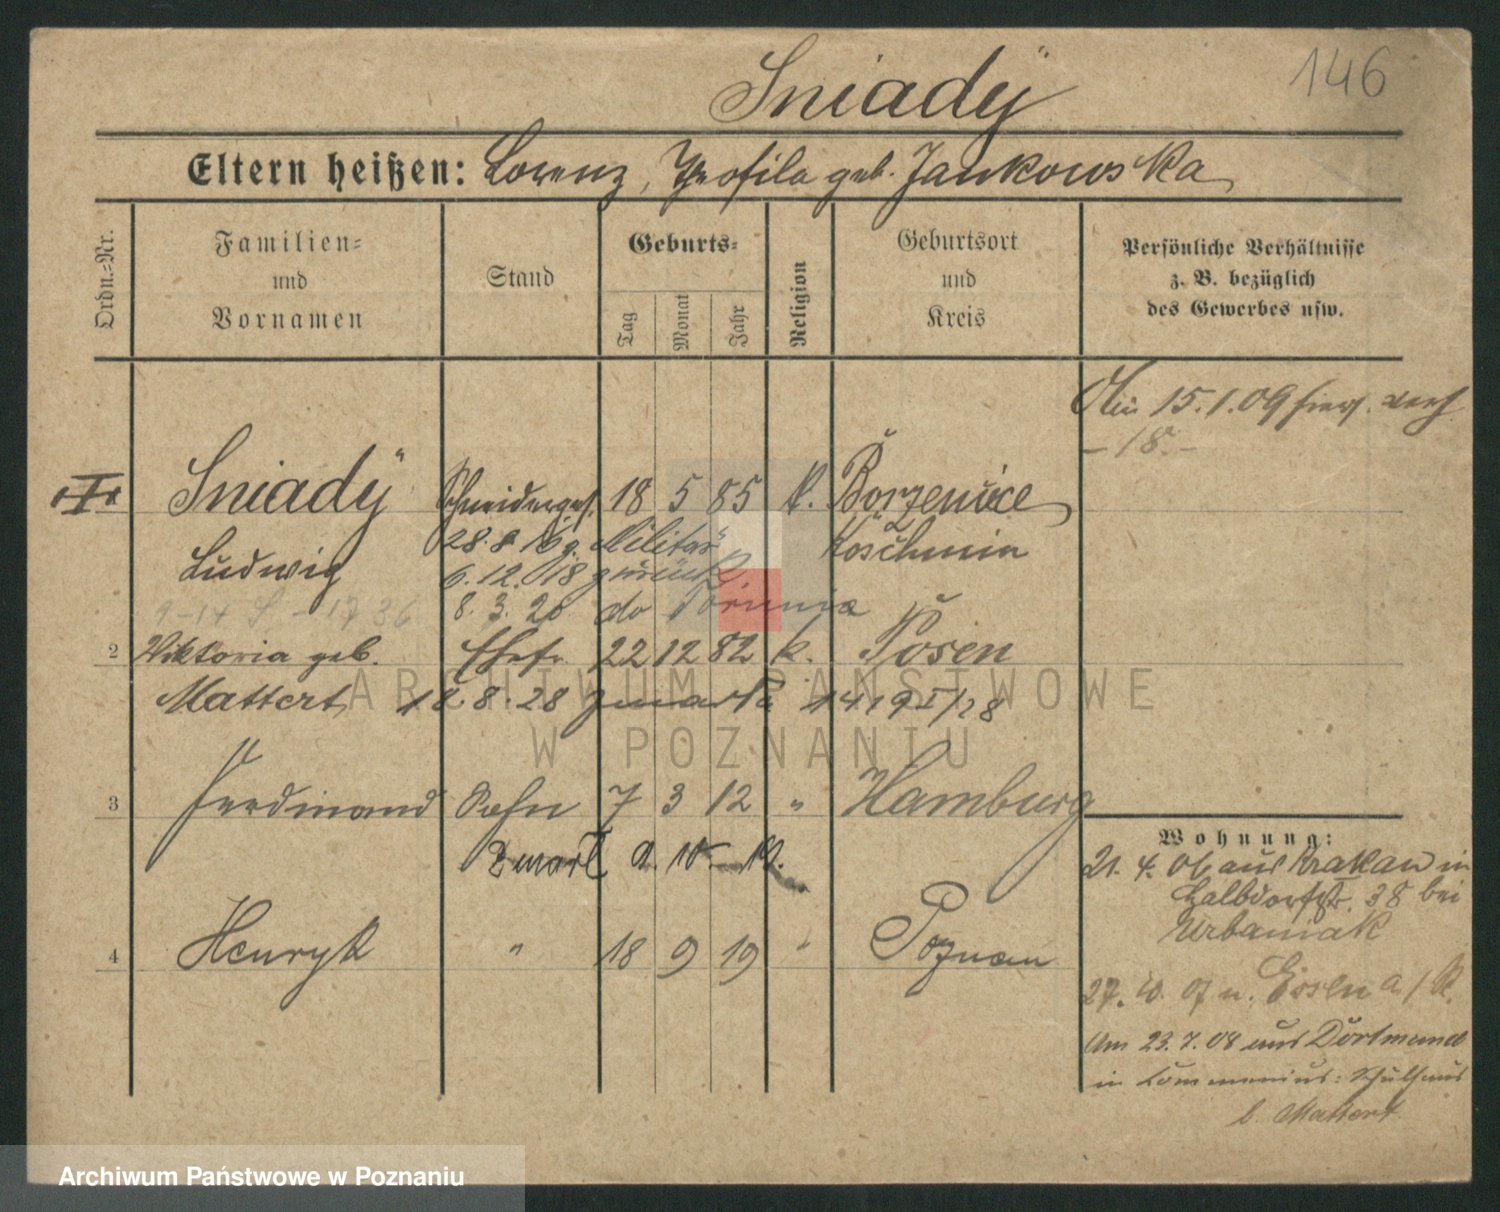 146
Sniadÿ
Eltern heißen: Lorenz, Theofila geb. Jankowska
Ordn.=Nr.
Familien=
und
Vornamen
Stand
Geburts=
Tag
Monat
Jahr
Religion
Geburtsort
und
Kreis
Persönliche Verhältnisse
z. B. bezüglich
des Gewerbes usw.
15.1.09
- 18. -
Sniadÿ Schneiderges. 18 5 85 k. Borzenicice
Ludwig 28.8.16 z. Militär Koschmin
6.12.18 zurück
8.3.20 do Torunia
2 Viktoria geb. Ehefr. 22 12 82 k. Posen
Mattert 18.8.28 zmarła
3 Ferdinand Sohn 7 3 12 " Hamburg
Zmarł
4 Henryk " 18 9 19 " Poznan
Wohnung:
21. 4. 06 aus Krakau in
Halbdorfstr. 38 bei
Urbaniak
27. 10. 07 n. Essen a/R.
Am 23.7.08 aus Dortmund
in
b. Mattert
ARCHIWUM PAŃSTWOWE
W POZNANIU
Archiwum Państwowe w Poznaniu